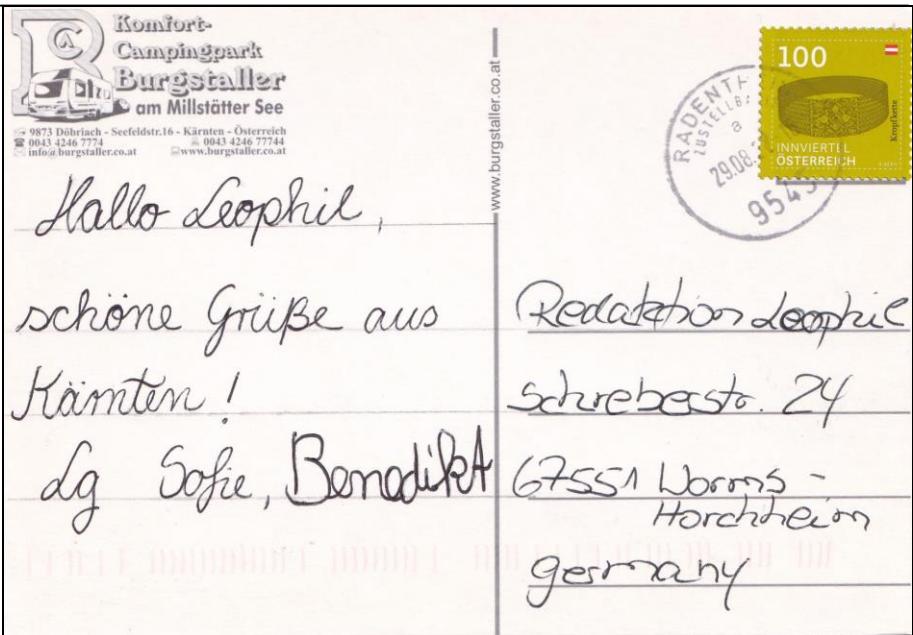 Komfort-
Campingpark
Burgstaller
am Millstätter See
9873 Döbriach - Seefeldstr.16 - Kärnten - Österreich
0043 4246 7774 0043 4246 77744
info@burgstaller.co.at www.burgstaller.co.at
Hallo Leophil,
schöne Grüße aus
Kärnten!
Lg Sofie, Benedikt
www.burgstaller.co.at
RADENTH
29.08.
9545
100
Kropfkette
INNVIERTEL
ÖSTERREICH
Redaktion Leophil
Schreberstr. 24
67551 Worms -
Horchheim
Germany